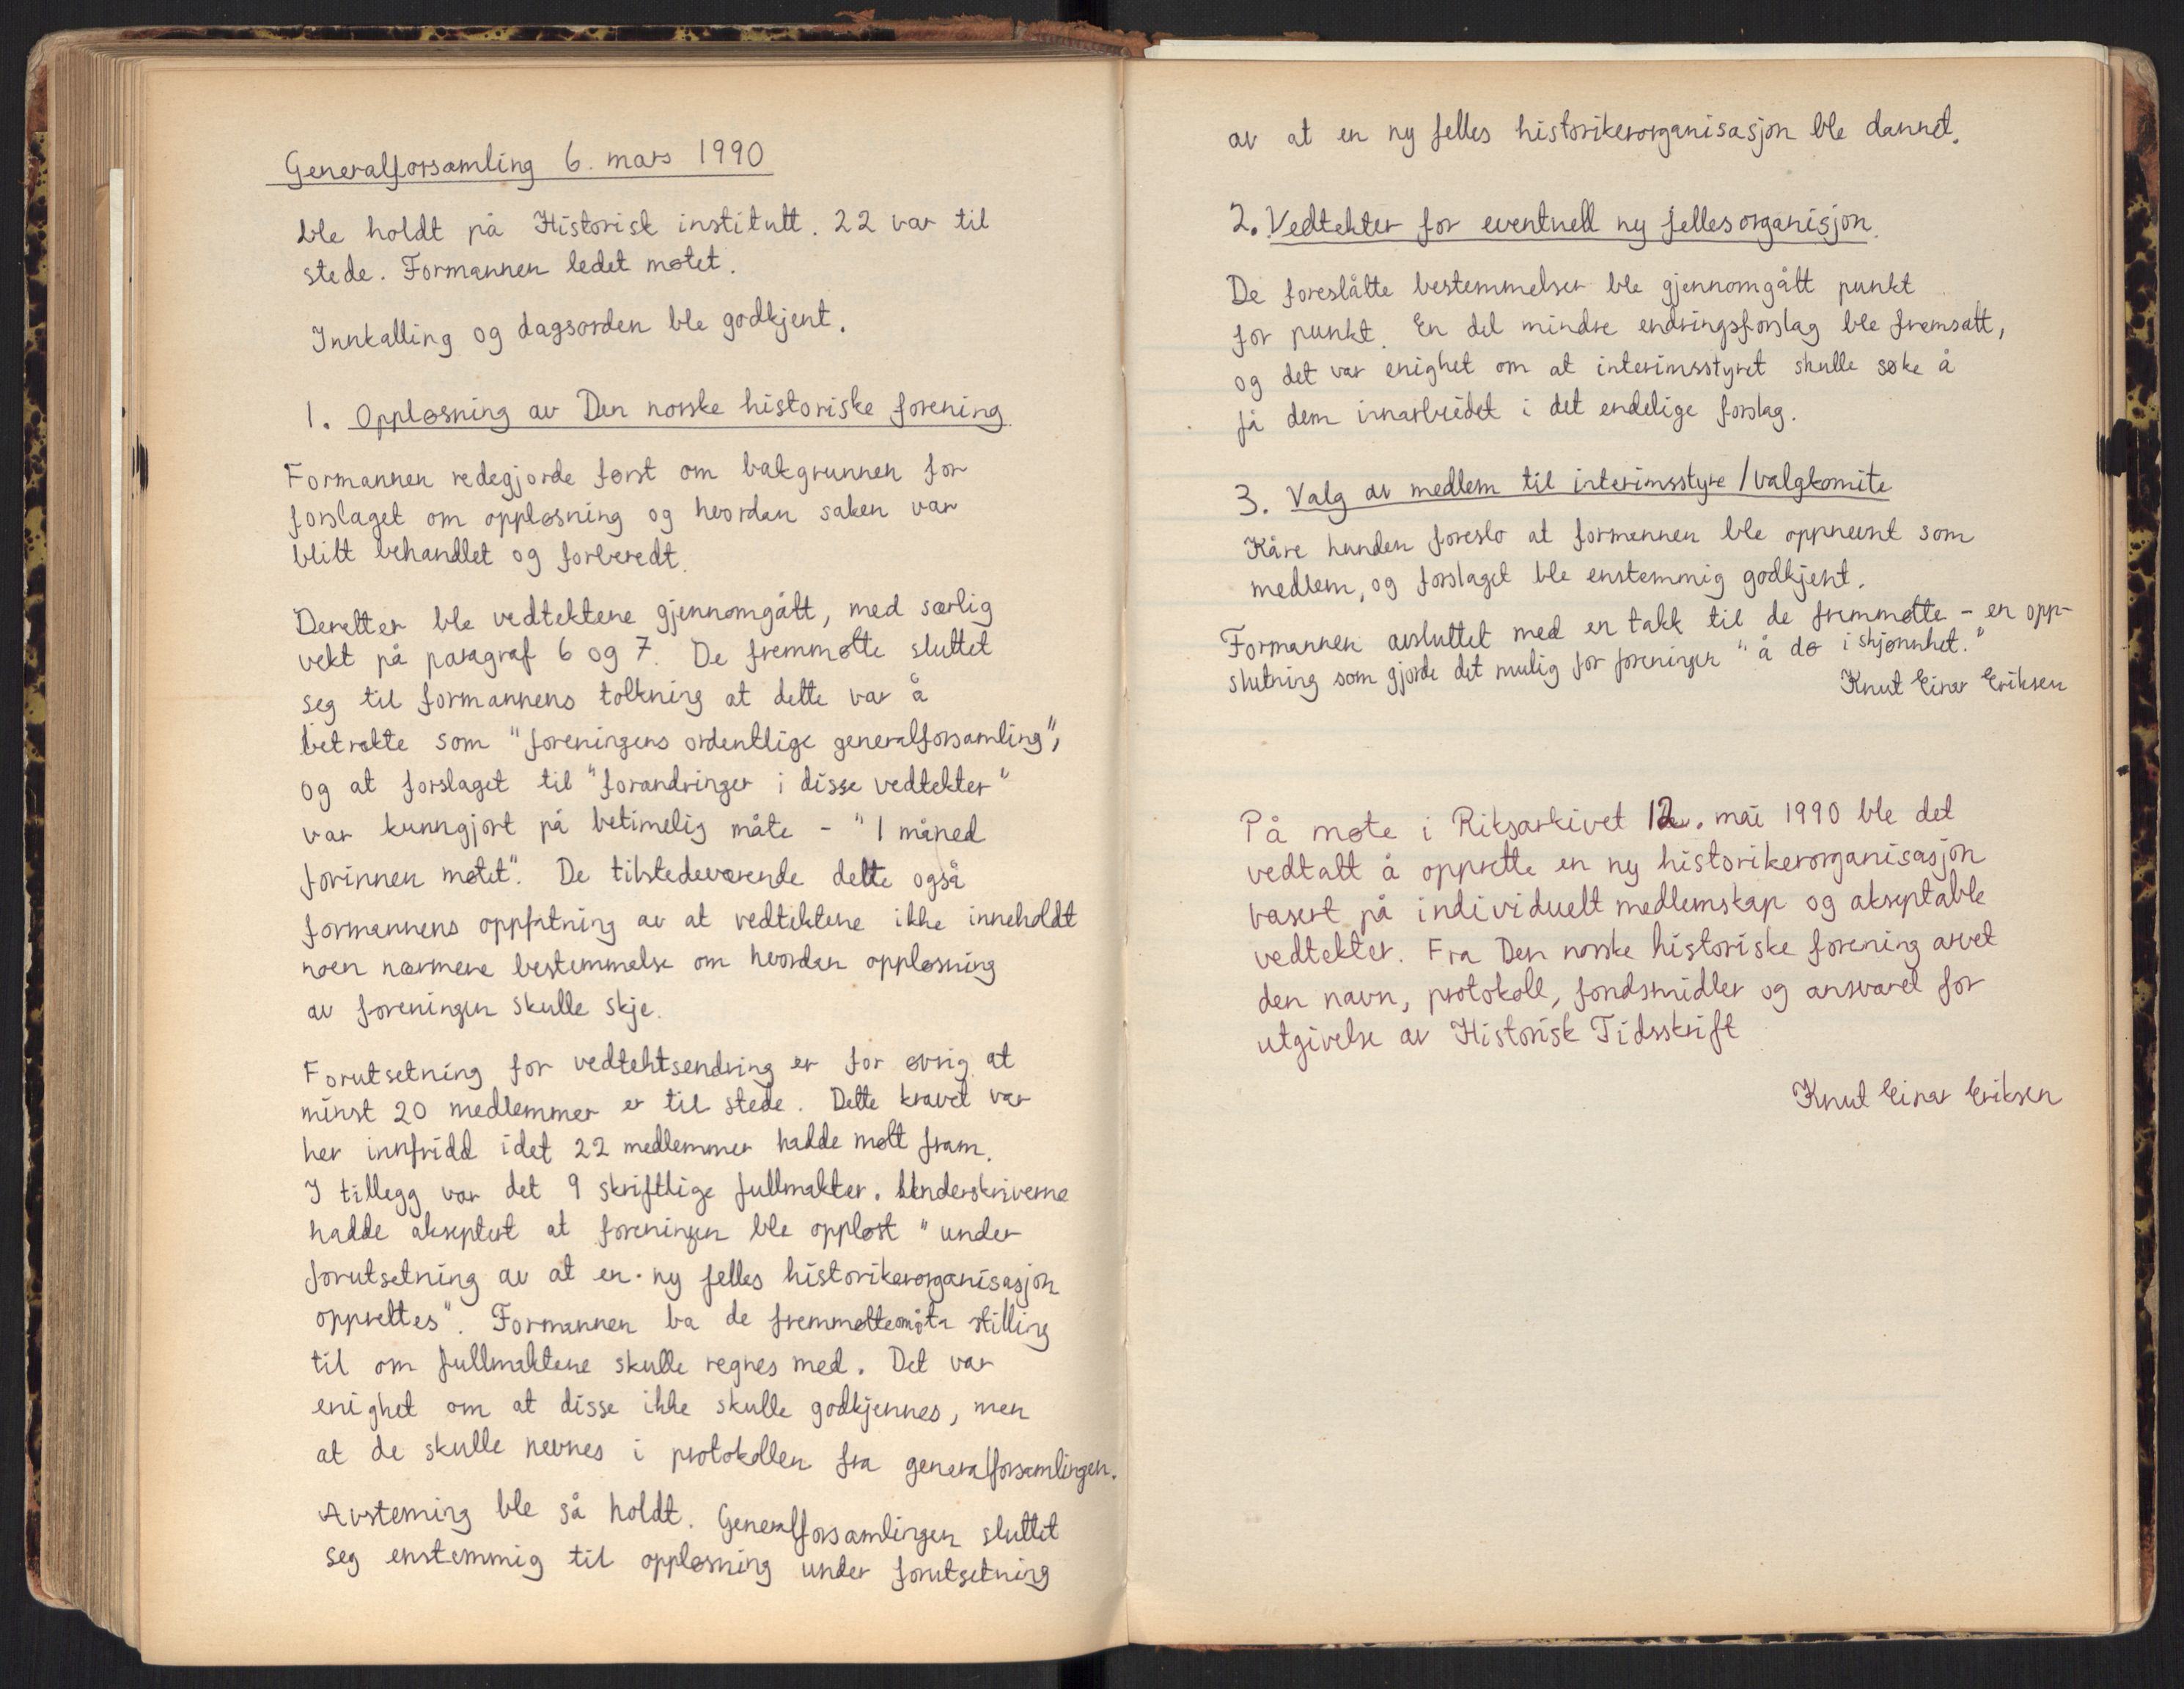 Generalforsamling 6. mars 1990
ble holdt på Historisk institutt. 22 var til
stede. Formannen ledet møtet.
Innkalling og dagsorden ble godkjent.
1. Oppløsning av Den norske historiske forening
Formannen redegjorde først om bakgrunnen for
forslaget om oppløsning og hvordan saken var
blitt behandlet og forberedt.
Deretter ble vedtektene gjennomgått, med særlig
vekt på paragraf 6 og 7. De fremmøtte sluttet
seg til formannens tolkning at dette var å
betrakte som "foreningens ordentlige generalforsamling",
og at forslaget til "forandringer i disse vedtekter"
var kunngjort på betimelig måte - "1 måned
forinnen møtet". De tilstedeværende delte også
formannens oppfatning av at vedtektene ikke inneholdt
noen nærmere bestemmelse om hvordan oppløsning
av foreningen skulle skje.
Forutsetning for vedtektsendring er for øvrig at
minst 20 medlemmer er til stede. Dette kravet var
her innfridd idet 22 medlemmer hadde møtt fram.
I tillegg var det 9 skriftlige fullmakter. Underskriverne
hadde akseptert at foreningen ble oppløst "under
forutsetning av at en ny felles historikerorganisasjon
opprettes". Formannen ba de fremmøtte om å ta stilling
til om fullmaktene skulle regnes med. Det var
enighet om at disse ikke skulle godkjennes, men
at de skulle nevnes i protokollen fra generalforsamlingen.
Avsteming ble så holdt. Generalforsamlingen sluttet
seg enstemmig til oppløsning under forutsetning
av at en ny felles historikerorganisasjon ble dannet.
2. Vedtekter for eventuell ny fellesorganisjon.
De foreslåtte bestemmelser ble gjennomgått punkt
for punkt. En del mindre endringsforslag ble fremsatt,
og det var enighet om at interimsstyret skulle søke å
få dem innarbeidet i det endelige forslag.
3. Valg av medlem til interimsstyre / valgkomite
Kåre Lunden foreslo at formannen ble oppnevnt som
medlem, og forslaget ble enstemmig godkjent.
Formannen avsluttet med en takk til de fremmøtte - en opp-
slutning som gjorde det mulig for foreningen "å dø i skjønnhet."
Knut Einar Eriksen
På møte i Riksarkivet 12. mai 1990 ble det
vedtatt å opprette en ny historikerorganisasjon
basert på individuelt medlemskap og akseptable
vedtekter. Fra Den norske historiske forening arvet
den navn, protokoll, fondsmidler og ansvaret for
utgivelse av Historisk Tidsskrift
Knut Einar Eriksen